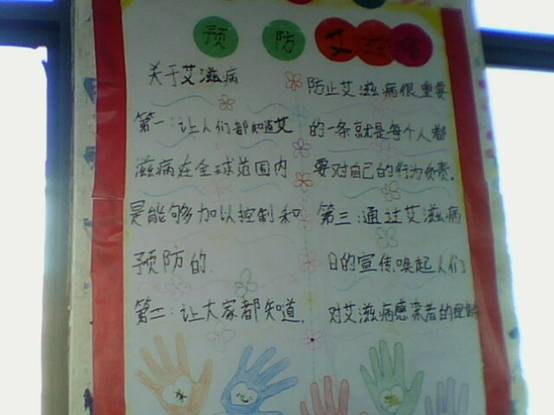 预防艾滋病
关于艾滋病
第一:让人们都知道艾
滋病在全球范围内
是能够加以控制和
预防的.
第二:让大家都知道.
防止艾滋病很重要
的一条就是每个人都
要对自己的行为负责.
第三:通过艾滋病
日的宣传,唤起人们
对艾滋病感染者的理解